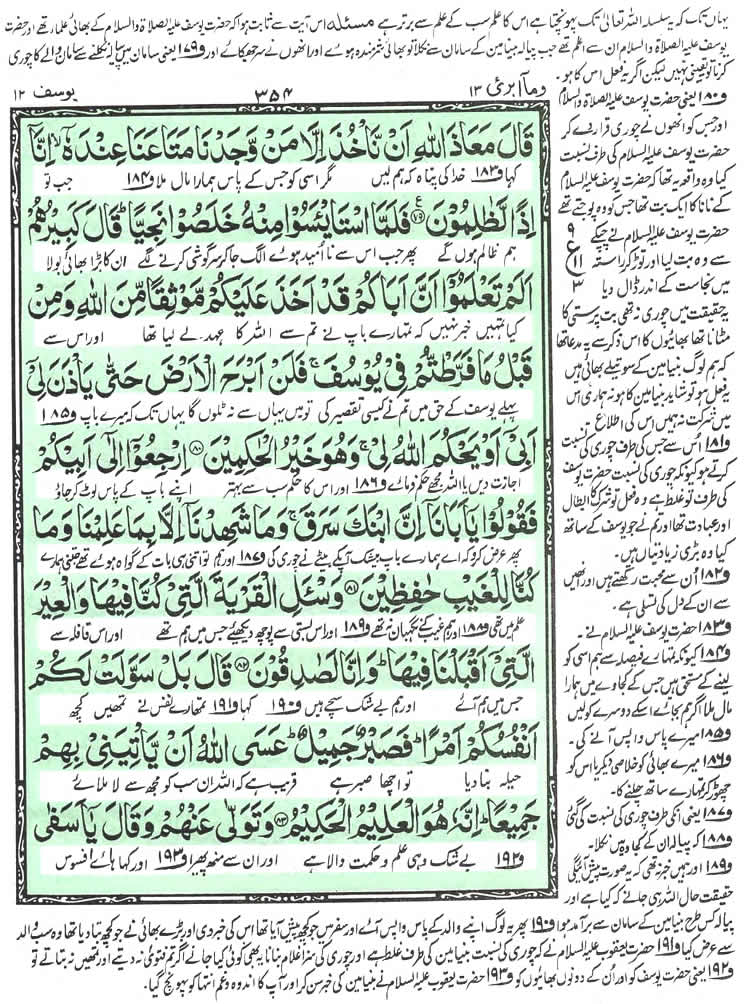 یہاں تک کہ یہ سلسلہ اللہ تعالیٰ تک پہونچتا ہے اس کا علم سب کے علم سے برتر ہے مسئلہ اس آیت سے ثابت ہوا کہ حضرت یوسف علیہ الصلاۃ والسلام کے بھائی علماء تھے اور حضرت
یوسف علیہ الصلاۃ والسلام ان سے اعلم تھے جب پیالہ بنیامین کے سامان سے نکلا تو بھائی شرمندہ ہوے اور انھوں نے سر جھکائے اور و۱۷۹ یعنی سامان میں پیالہ نکلنے سے سامان والے کا چوری
کرنا تو یقینی نہیں لیکن اگر یہ فعل اس کا ہو۔
یوسف ۱۲
۳۵۴
وما ابرئ ۱۳
قَالَ مَعَاذَ اللّٰهِ اَنْ نَّاْخُذَ اِلَّا مَنْ وَّجَدْنَا مَتَاعَنَا عِنْدَهٗۤ ۙ اِنَّاۤ
کہا و۱۸۳ خدا کی پناہ کہ ہم لیں مگر اسی کو جس کے پاس ہمارا مال ملا و۱۸۴ جب تو
اِذًا لَّظٰلِمُوْنَ ﴿۷۹﴾ فَلَمَّا اسْتَایْـَٔسُوْا مِنْهُ خَلَصُوْا نَجِیًّا ؕ قَالَ كَبِیْرُهُمْ
ہم ظالم ہوں گے پھر جب اس سے نا اُمید ہوے الگ جا کر سرگوشی کرنے لگے ان کا بڑا بھائی بولا
اَلَمْ تَعْلَمُوْۤا اَنَّ اَبَاكُمْ قَدْ اَخَذَ عَلَیْكُمْ مَّوْثِقًا مِّنَ اللّٰهِ وَمِنْ
کیا تمہیں خبر نہیں کہ تمہارے باپ نے تم سے اللہ کا عہد لے لیا تھا اور اس سے
قَبْلُ مَا فَرَّطْتُّمْ فِیْ یُوْسُفَ ۚ فَلَنْ اَبْرَحَ الْاَرْضَ حَتّٰی یَاْذَنَ لِیْۤ
پہلے یوسف کے حق میں تم نے کیسی تقصیر کی تو میں یہاں سے نہ ٹلوں گا یہاں تک کہ میرے باپ و۱۸۵
اَبِیْۤ اَوْ یَحْكُمَ اللّٰهُ لِیْ ۚ وَهُوَ خَیْرُ الْحٰكِمِیْنَ ﴿۸۰﴾ اِرْجِعُوْۤا اِلٰۤی اَبِیْكُمْ
اجازت دیں یا اللہ مجھے حکم فرمائے و۱۸۶ اور اس کا حکم سب سے بہتر اپنے باپ کے پاس لوٹ کر جاؤ
فَقُوْلُوْا یٰۤاَبَانَاۤ اِنَّ ابْنَكَ سَرَقَ ۚ وَمَا شَهِدْنَاۤ اِلَّا بِمَا عَلِمْنَا وَمَا
پھر عرض کرو کہ اے ہمارے باپ بیشک آپکے بیٹے نے چوری کی و۱۸۷ اور ہم تو اتنی ہی بات کے گواہ ہوے تھے جتنی ہمارے
كُنَّا لِلْغَیْبِ حٰفِظِیْنَ ﴿۸۱﴾ وَسْـَٔلِ الْقَرْیَةَ الَّتِیْ كُنَّا فِیْهَا وَالْعِیْرَ
علم میں تھی و۱۸۸ اور ہم غیب کے نگہبان نہ تھے و۱۸۹ اور اس بستی سے پوچھ دیکھئے جس میں ہم تھے اور اس قافلہ سے
الَّتِیْۤ اَقْبَلْنَا فِیْهَا ؕ وَاِنَّا لَصٰدِقُوْنَ ﴿۸۲﴾ قَالَ بَلْ سَوَّلَتْ لَكُمْ
جس میں ہم آئے اور ہم بے شک سچے ہیں و۱۹۰ کہا و۱۹۱ تمہارے نفس نے تمھیں کچھ
اَنْفُسُكُمْ اَمْرًا ؕ فَصَبْرٌ جَمِیْلٌ ؕ عَسَی اللّٰهُ اَنْ یَّاْتِیَنِیْ بِهِمْ
حیلہ بنا دیا تو اچھا صبر ہے قریب ہے کہ اللہ ان سب کو مجھ سے لا ملائے
جَمِیْعًا ؕ اِنَّهٗ هُوَ الْعَلِیْمُ الْحَكِیْمُ ﴿۸۳﴾ وَتَوَلّٰی عَنْهُمْ وَقَالَ یٰۤاَسَفٰی
و۱۹۲ بے شک وہی علم و حکمت والا ہے اور ان سے منھ پھیرا و۱۹۳ اور کہا ہائے افسوس
ع ۹ ۱۱ ۳
و۱۸۰ یعنی حضرت یوسف علیہ الصلاۃ والسلام
اور جس کو انھوں نے چوری قرار دے کر
حضرت یوسف علیہ السلام کی طرف نسبت
کیا وہ واقعہ یہ تھا کہ حضرت یوسف علیہ السلام
کے نانا کا ایک بت تھا جس کو وہ پوجتے تھے
حضرت یوسف علیہ السلام نے چپکے
سے وہ بت لیا اور توڑ کر راستہ
میں نجاست کے اندر ڈال دیا
یہ حقیقت میں چوری نہ تھی بت پرستی کا
مٹانا تھا بھائیوں کا اس ذکر سے یہ مدعا تھا
کہ ہم لوگ بنیامین کے سوتیلے بھائی ہیں
یہ فعل ہو تو شاید بنیامین کا ہو نہ ہماری اس
میں شرکت نہ ہمیں اس کی اطلاع
و۱۸۱ اُس سے جس کی طرف چوری کی نسبت
کرتے ہو کیونکہ چوری کی نسبت حضرت یوسف
کی طرف تو غلط ہے وہ فعل تو شرک کا ابطال
اور عبادت تھا اور تم نے جو یوسف کے ساتھ
کیا وہ بڑی زیادتیاں ہیں۔
و۱۸۲ اُن سے محبت رکھتے ہیں اور انھیں
سے ان کے دل کی تسلی ہے۔
و۱۸۳ حضرت یوسف علیہ السلام نے۔
و۱۸۴ کیونکہ تمہارے فیصلہ سے ہم اسی کو
لینے کے مستحق ہیں جس کے کجاوے میں ہمارا
مال ملا اگر ہم بجائے اسکے دوسرے کو لیں
و۱۸۵ میرے پاس واپس آنے کی۔
و۱۸۶ میرے بھائی کو خلاصی دیکر یا اس کو
چھوڑ کر تمہارے ساتھ چلنے کا۔
و۱۸۷ یعنی انکی طرف چوری کی نسبت کی گئی
و۱۸۸ کہ پیالہ ان کے کجاوہ میں نکلا۔
و۱۸۹ اور ہمیں خبر نہ تھی کہ یہ صورت پیش آئیگی
حقیقت حال اللہ ہی جانے کہ کیا ہے اور
پیالہ کس طرح بنیامین کے سامان سے برآمد ہوا و۱۹۰ پھر یہ لوگ اپنے والد کے پاس واپس آئے اور سفر میں جو کچھ پیش آیا تھا اس کی خبر دی اور بڑے بھائی نے جو کچھ بتا دیا تھا وہ سب والد
سے عرض کیا و۱۹۱ حضرت یعقوب علیہ السلام نے کہ چوری کی نسبت بنیامین کی طرف غلط ہے اور چوری کی سزا غلام بنانا یہ بھی کوئی کیا جانے اگر تم فتوی نہ دیتے اور تمھیں نہ بتاتے تو
و۱۹۲ یعنی حضرت یوسف کو اور اُن کے دونوں بھائیوں کو و۱۹۳ حضرت یعقوب علیہ السلام نے بنیامین کی خبر سن کر اور آپ کا اندوہ و غم انتہا کو پہونچ گیا۔